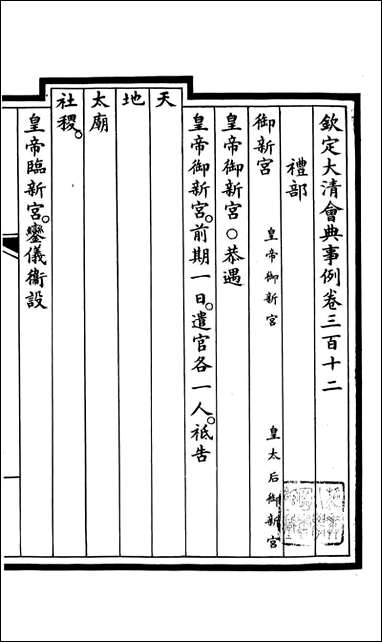 欽定大清會典事例卷三百十二
禮部
御新宮 皇帝御新宮 皇太后御新宮
皇帝御新宮○恭遇
皇帝御新宮。前期一日。遣官各一人。祗告
天
地
太廟
社稷。
皇帝臨新宮。鑾儀衞設